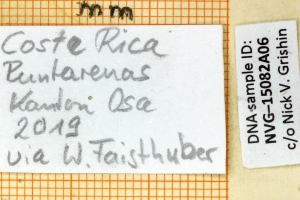 mm
Costa Rica
Puntarenas
Kanton Osa
2019
via W. Faisthuber
DNA sample ID:
NVG-15082A06
c/o Nick V. Grishin